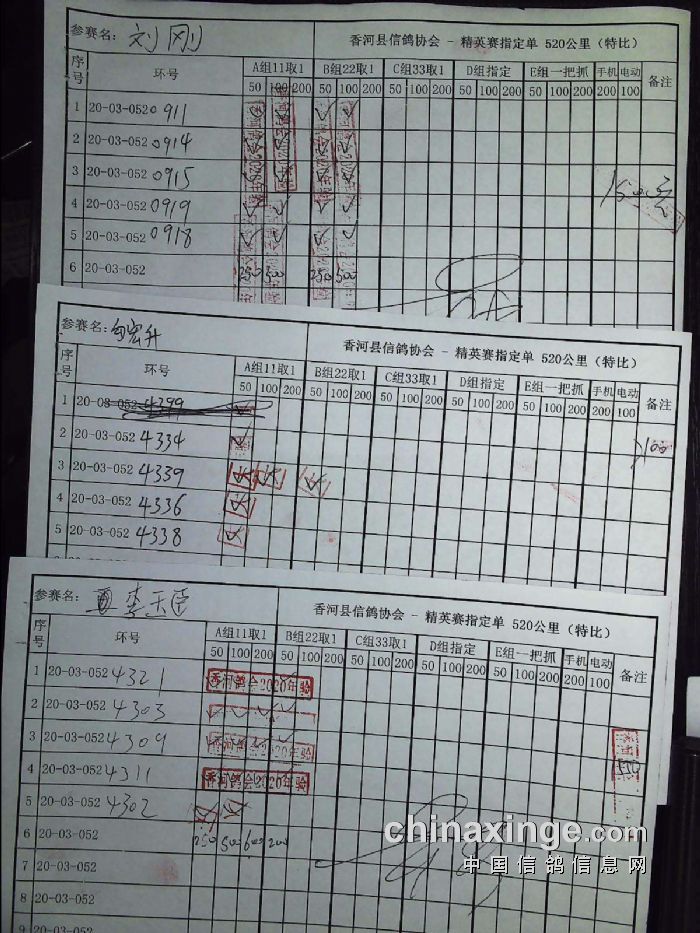 参赛名: 刘刚 香河县信鸽协会 - 精英赛指定单 520公里（特比）
序号 环号 A组11取1 B组22取1 C组33取1 D组指定 E组一把抓 手机 电动 备注
50 100 200 50 100 200 50 100 200 50 100 200 50 100 200 200 100
1 20-03-052 0911
2 20-03-052 0914
3 20-03-052 0915
4 20-03-052 0919
5 20-03-052 0918
6 20-03-052 250 500 250 500
参赛名: 香河县信鸽协会 - 精英赛指定单 520公里（特比）
序号 环号 A组11取1 B组22取1 C组33取1 D组指定 E组一把抓 手机 电动 备注
50 100 200 50 100 200 50 100 200 50 100 200 50 100 200 200 100
1 20-03-052 4399
2 20-03-052 4334
3 20-03-052 4339
4 20-03-052 4336
5 20-03-052 4338
参赛名: 李玉臣 香河县信鸽协会 - 精英赛指定单 520公里（特比）
序号 环号 A组11取1 B组22取1 C组33取1 D组指定 E组一把抓 手机 电动 备注
50 100 200 50 100 200 50 100 200 50 100 200 50 100 200 200 100
1 20-03-052 4321 香河鸽会2020年验
2 20-03-052 4303
3 20-03-052 4309 香河鸽会2020年验
4 20-03-052 4311 香河鸽会2020年验
5 20-03-052 4302
6 20-03-052 250 500 600 200
7 20-03-052
8 20-03-052
9
chinaxinge.com
中国信鸽信息网